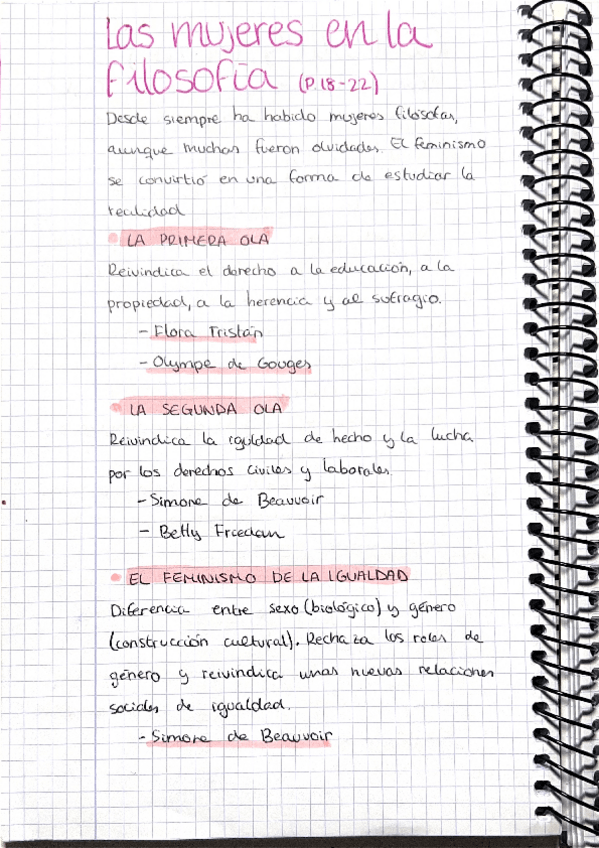 Las mujeres en la
filosofía (P.18-22)
Desde siempre ha habido mujeres filósofas,
aunque muchas fueron olvidadas. El feminismo
se convirtió en una forma de estudiar la
realidad
• LA PRIMERA OLA
Reivindica el derecho a la educación, a la
propiedad, a la herencia y al sufragio.
- Flora Tristán
- Olympe de Gouges
• LA SEGUNDA OLA
Reivindica la iguldad de hecho y la lucha
por los derechos civiles y laborales.
- Simone de Beauvoir
- Betty Friedan
• EL FEMINISMO DE LA IGUALDAD
Diferencia entre sexo (biológico) y género
(construcción cultural). Rechaza los roles de
género y reivindica unas nuevas relaciones
sociales de igualdad.
- Simone de Beauvoir